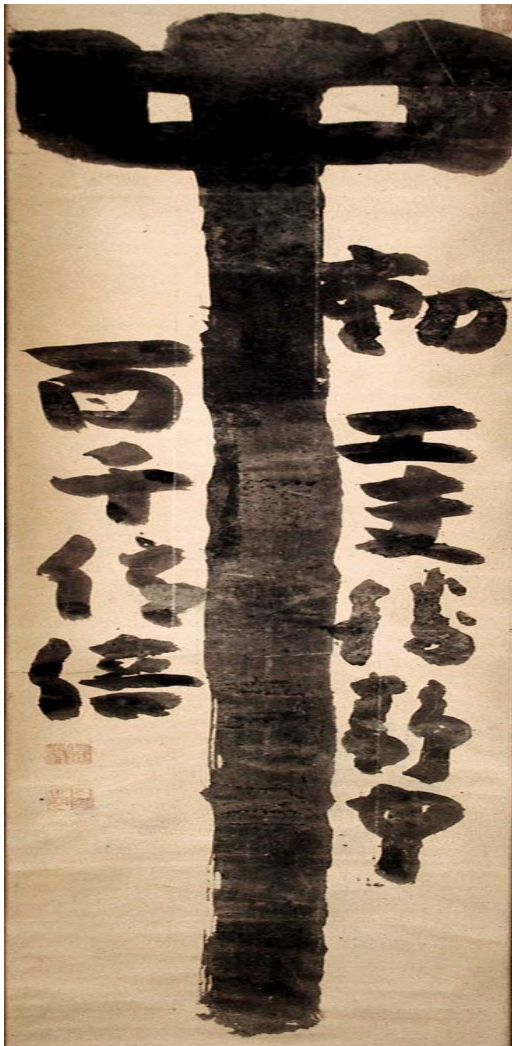 動
中
工夫勝静中
百千億倍